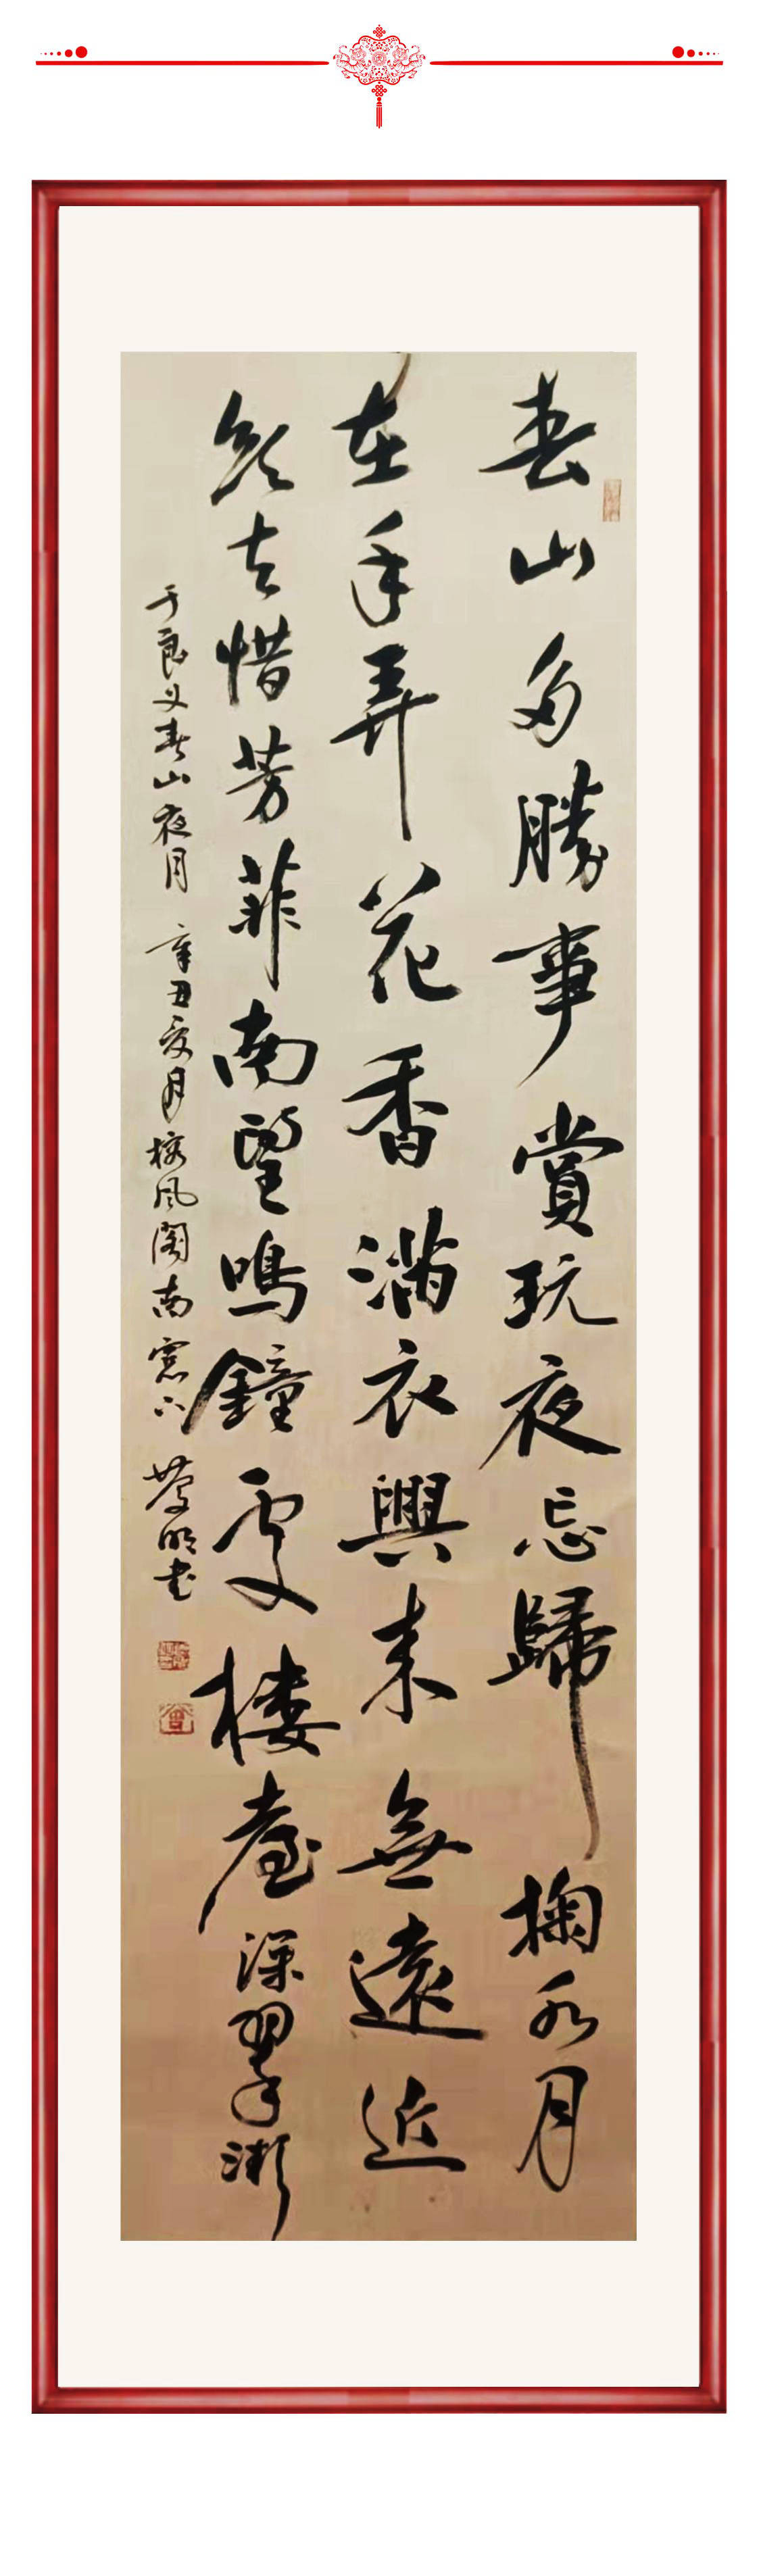 春山多勝事賞玩夜忘歸掬水月
在手弄花香滿衣興來無遠近
欲去惜芳菲南望鳴鐘處樓臺深翠微
于良史春山夜月 辛丑夏月榕風閣南窗下 明书